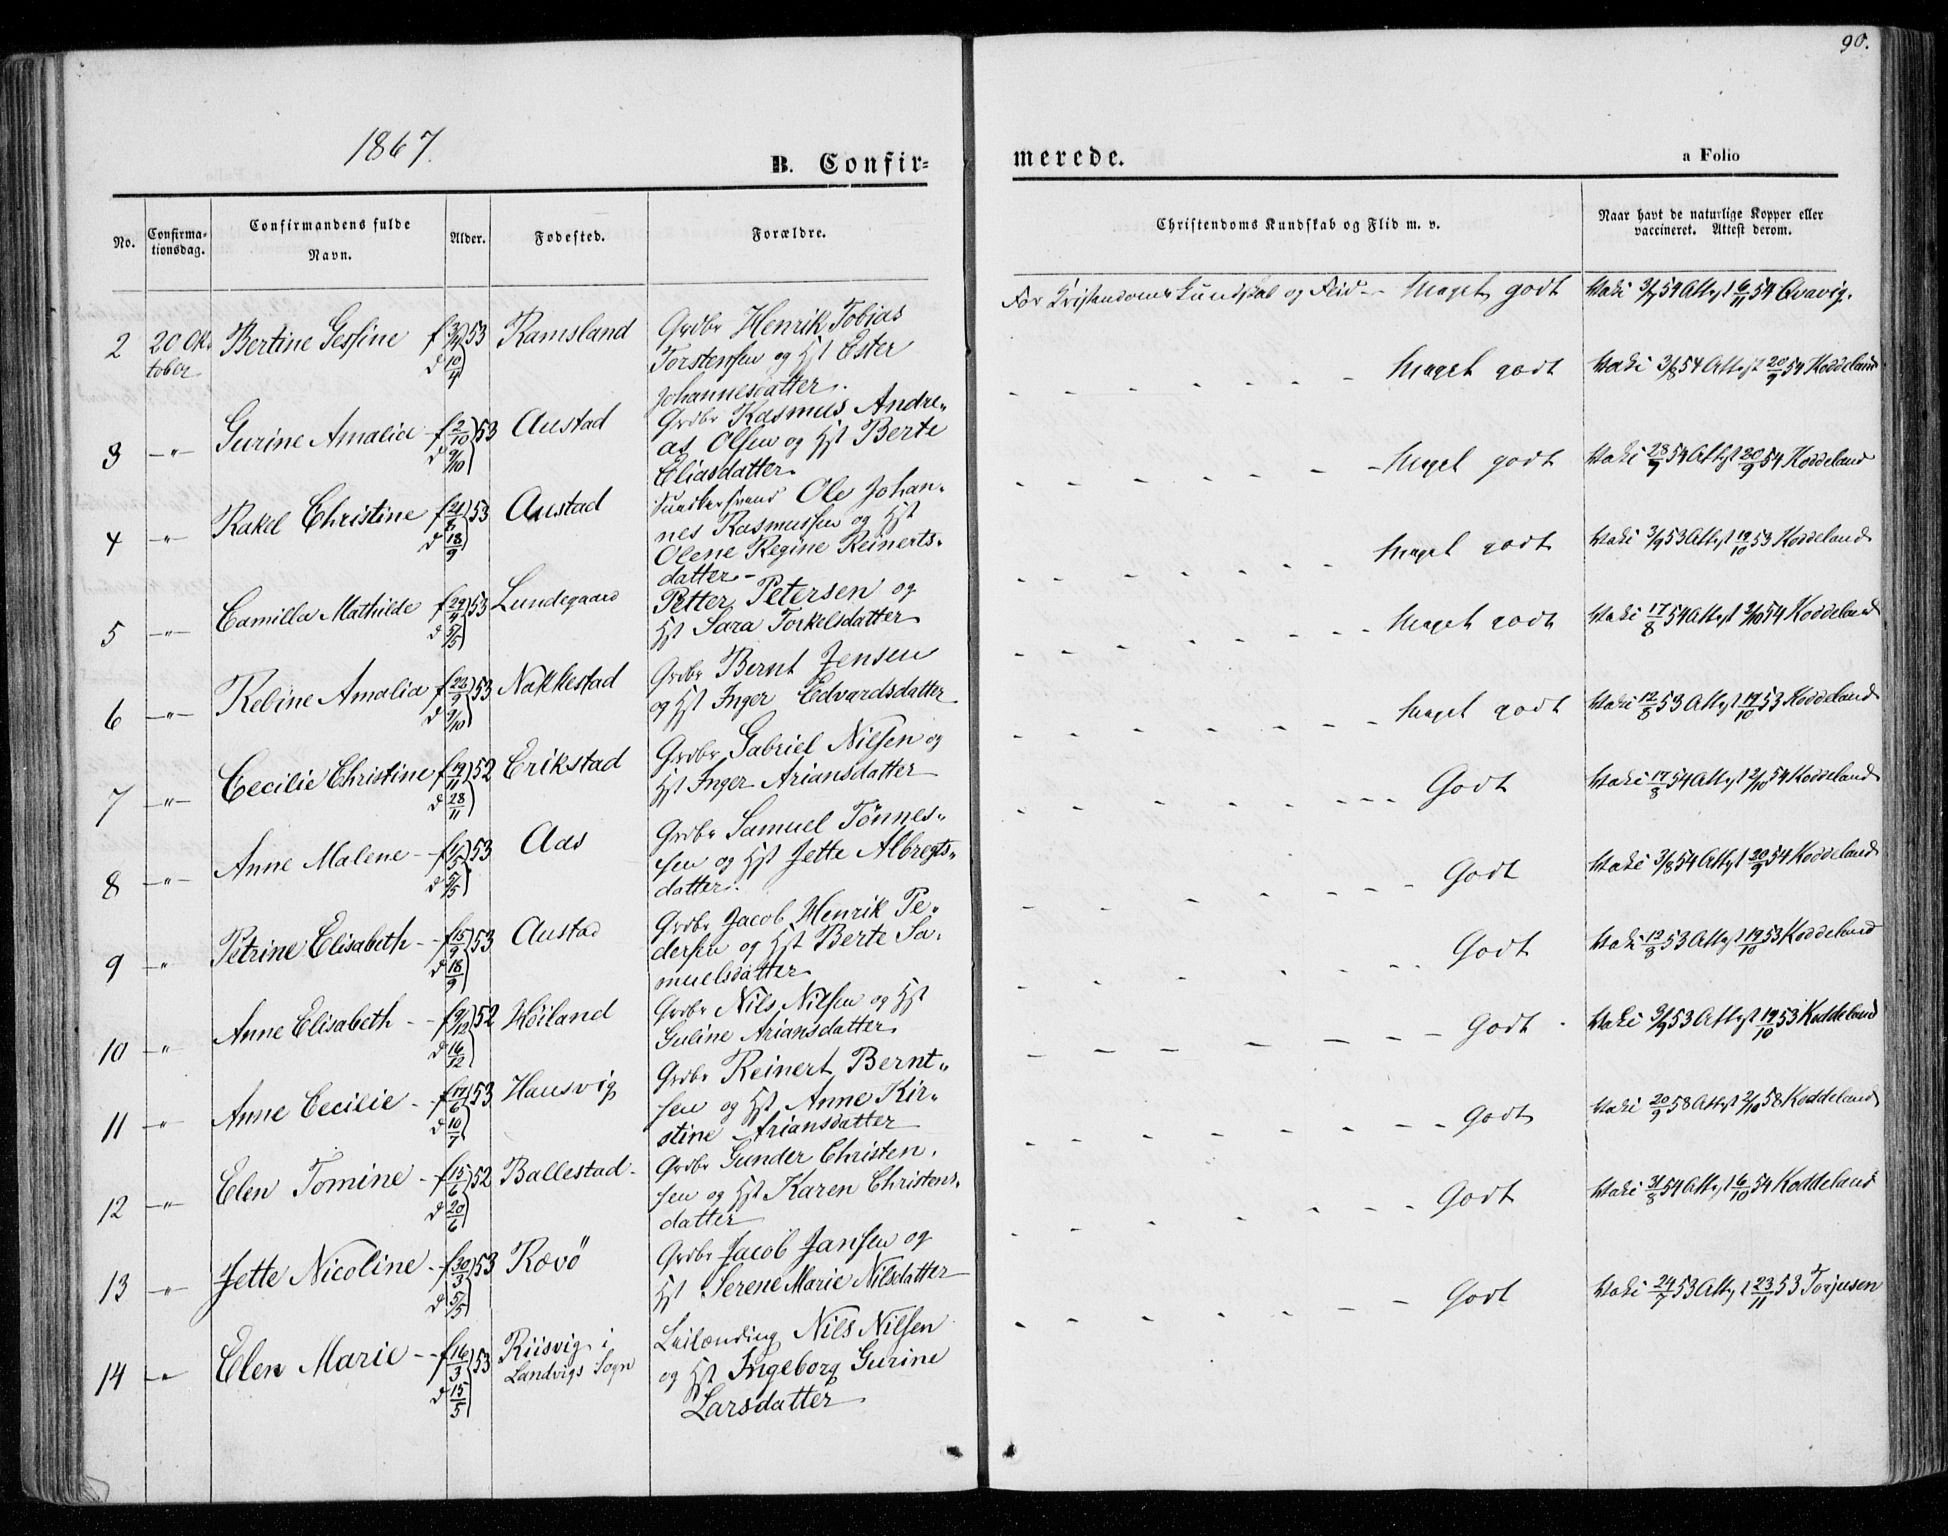 90.
1867.
B. Confir-
merede.
a Folio
No.
Confirma-
tionsdag.
Confirmandens fulde
Navn.
Alder.
Fødested.
Forældre.
Christendoms Kundskab og Flid m. v.
Naar havt de naturlige Kopper eller
vaccineret. Attest derom.
2 20 Ok- Bertine Gesine f 3/4 53 Ramsland Grdbr Henrik Tobias
tober d 10/4 Torstensen og Hst Ester
Johannesdatter.
For Kristendoms Kundskab og Flid - Meget godt Vaki 3/7 54 Attest 6/11 54 Qvavig.
3 -"- Gurine Amalia f 2/10 53 Austad Grdbr Rasmus Andre-
d 9/10 as Olsen og Hst Berte
Eliasdatter
Meget godt Vaki 3/8 54 Attest 20/9 54 Koddeland
4 -"- Rakel Christine f 21/8 53 Austad Ole Johan-
d 18/9 nes Rasmussen og Hst
Olene Regine Reinerts-
datter -
Meget godt Vaki 28/7 54 Attest 20/9 54 Koddeland
5 -"- Camilla Mathilde f 29/4 53 Lundegaard Petter Petersen og
d 5/5 Hst Sara Torkelsdatter
Meget godt Vaki 3/9 53 Attest 19/10 53 Koddeland
6 -"- Reline Amalia f 22/9 53 Nakkestad Grdbr Bernt Jensen
d 9/10 og Hst Inger Edvardsdatter
Meget godt Vaki 17/8 54 Attest 2/10 54 Koddeland
7 -"- Cecilie Christine f 19/11 52 Erikstad Grdbr Gabriel Nilsen og
d 28/11 Hst Inger Ariansdatter
Meget godt Vaki 12/8 53 Attest 19/10 53 Koddeland
8 -"- Anne Malene - f 1/5 53 Aas Grdbr Samuel Tønnes-
d 5/5 sen og Hst Jette Albregts-
datter.
Godt Vaki 17/8 54 Attest 2/10 54 Koddeland
9 -"- Petrine Elisabeth - f 15/9 53 Austad Grdbr Jacob Henrik Pe-
d 18/9 dersen og Hst Berte Sa-
muelsdatter
Godt Vaki 3/8 54 Attest 20/9 54 Koddeland
10 " Anne Elisabeth - f 9/12 52 Høiland Grdbr Nils Nilsen og Hst
d 16/12 Guline Ariansdatter
Godt Vaki 12/8 53 Attest 19/10 53 Koddeland
11 " Anne Cecilie - f 17/6 53 Hausvig Grdbr Reinert Bernt-
d 10/7 sen og Hst Anne Kir-
stine Ariansdatter
Godt Vaki 3/9 53 Attest 19/10 53 Koddeland
12 -"- Elen Tomine - f 15/6 52 Ballestad - Grdbr Gunder Christen-
d 20/6 sen og Hst Karen Christens-
datter
Godt Vaki 20/9 58 Attest 2/10 58 Koddeland
13 " Jette Nicoline - f 30/3 53 Rævø Grdbr Jacob Jansen og
d 5/5 Hst Serene Marie Nilsdatter
Godt Vaki 31/8 54 Attest 6/10 54 Koddeland
14 " Elen Marie - f 16/3 53 Riisvig i Leilænding Nils Nilsen
d 15/5 Landvigs Sogn og Hst Ingeborg Gurine
Larsdatter
Godt Vaki 24/7 53 Attest 23/11 53 Torjusen